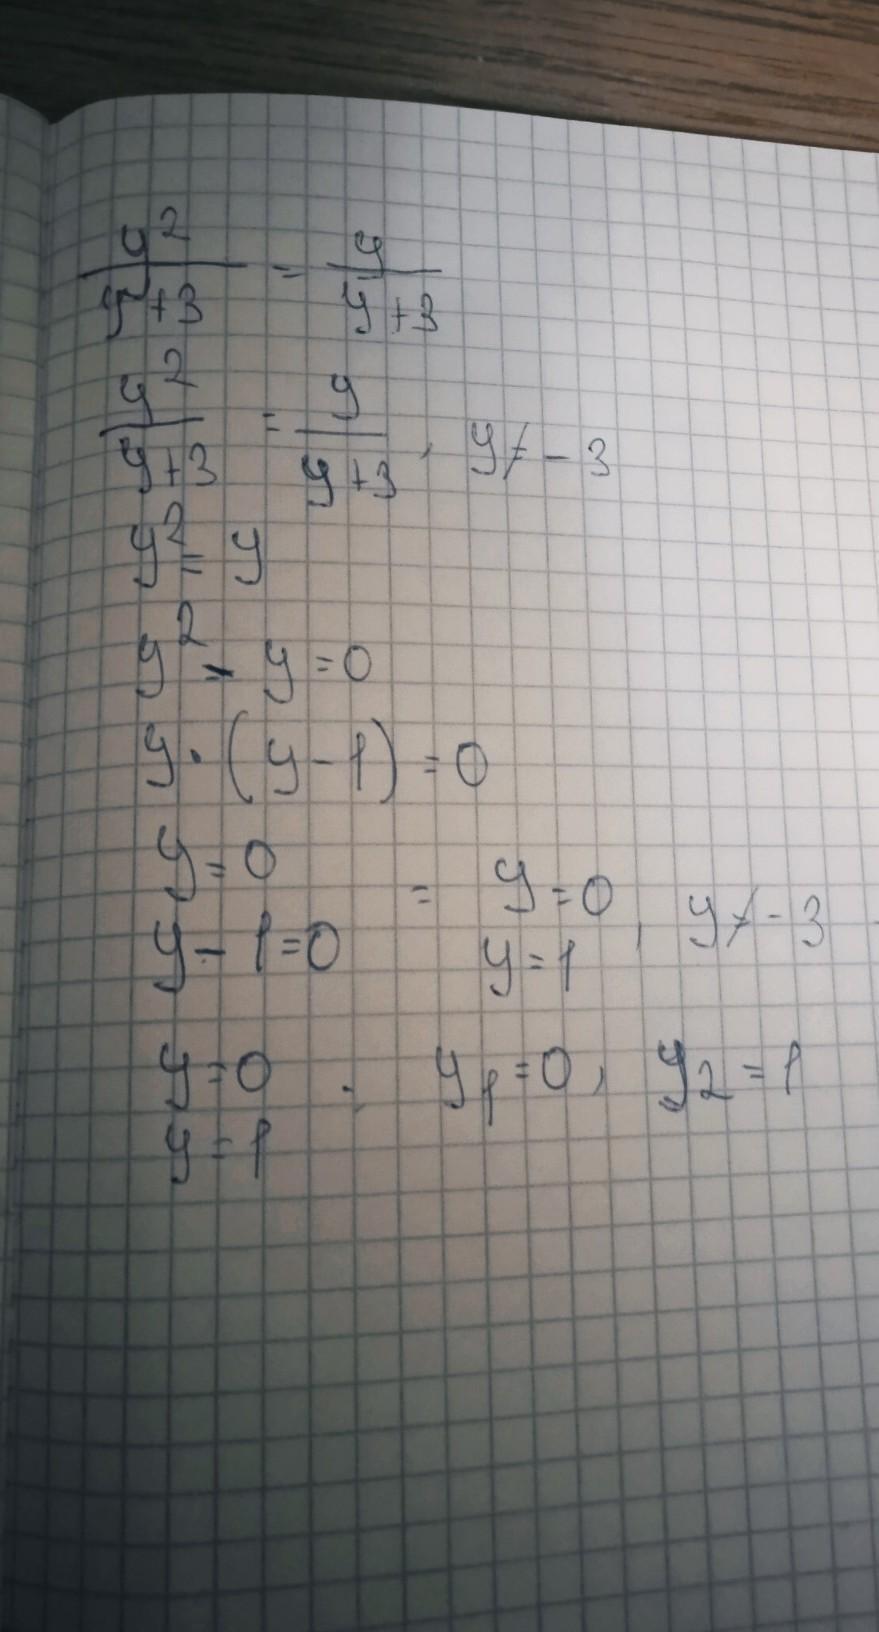 y²/(y+3) = y/(y+3)
y²/(y+3) = y/(y+3), y ≠ -3
y² = y
y² - y = 0
y · (y - 1) = 0
y = 0
y - 1 = 0
= y = 0
y = 1, y ≠ -3
y = 0
y = 1
. y₁ = 0, y₂ = 1